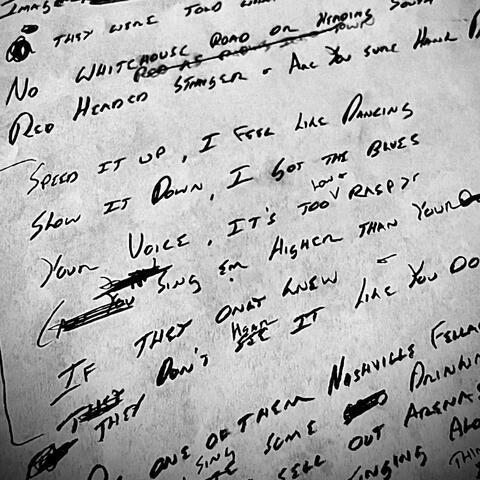 IMAGE
THEY WERE TOLD WHA
NO WHITEHOUSE ROAD OR HEADING SOUTH
RED HEADED STRANGER - ARE YOU SURE HANK D
SPEED IT UP, I FEEL LIKE DANCING
SLOW IT DOWN, I GOT THE BLUES
YOUR VOICE, IT'S TOO LOW & RASPY
(YOU SING EM HIGHER THAN YOUR
IF THEY ONLY KNEW -
THEY
THEY DON'T SEE HEAR IT LIKE YOU DO
ONE OF THEM NASHVILLE FELLA
SING SOME DRINKIN
SELL OUT ARENAS
SINGING ALO
THIN